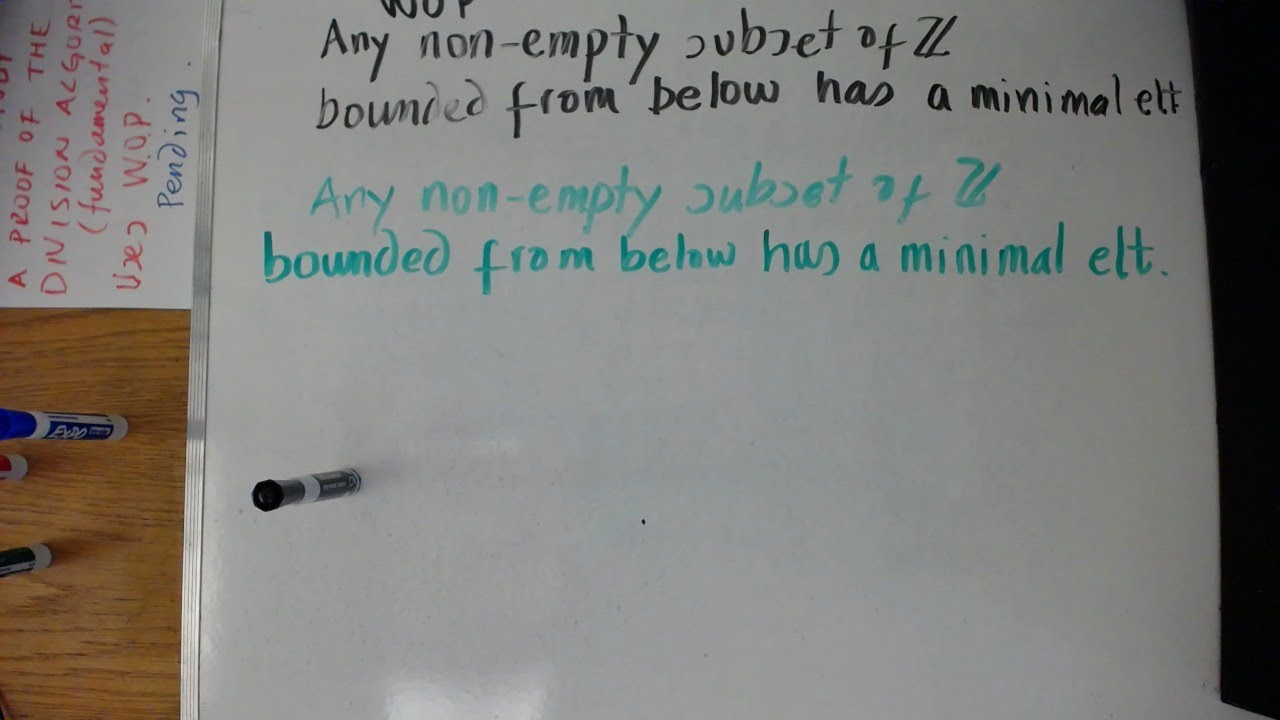 WOP
Any non-empty subset of ℤ
bounded from below has a minimal elt
Any non-empty subset of ℤ
bounded from below has a minimal elt.
A PROOF OF THE
DIVISION ALGORI
(fundamental)
Uses W.O.P.
Pending.
EXPO